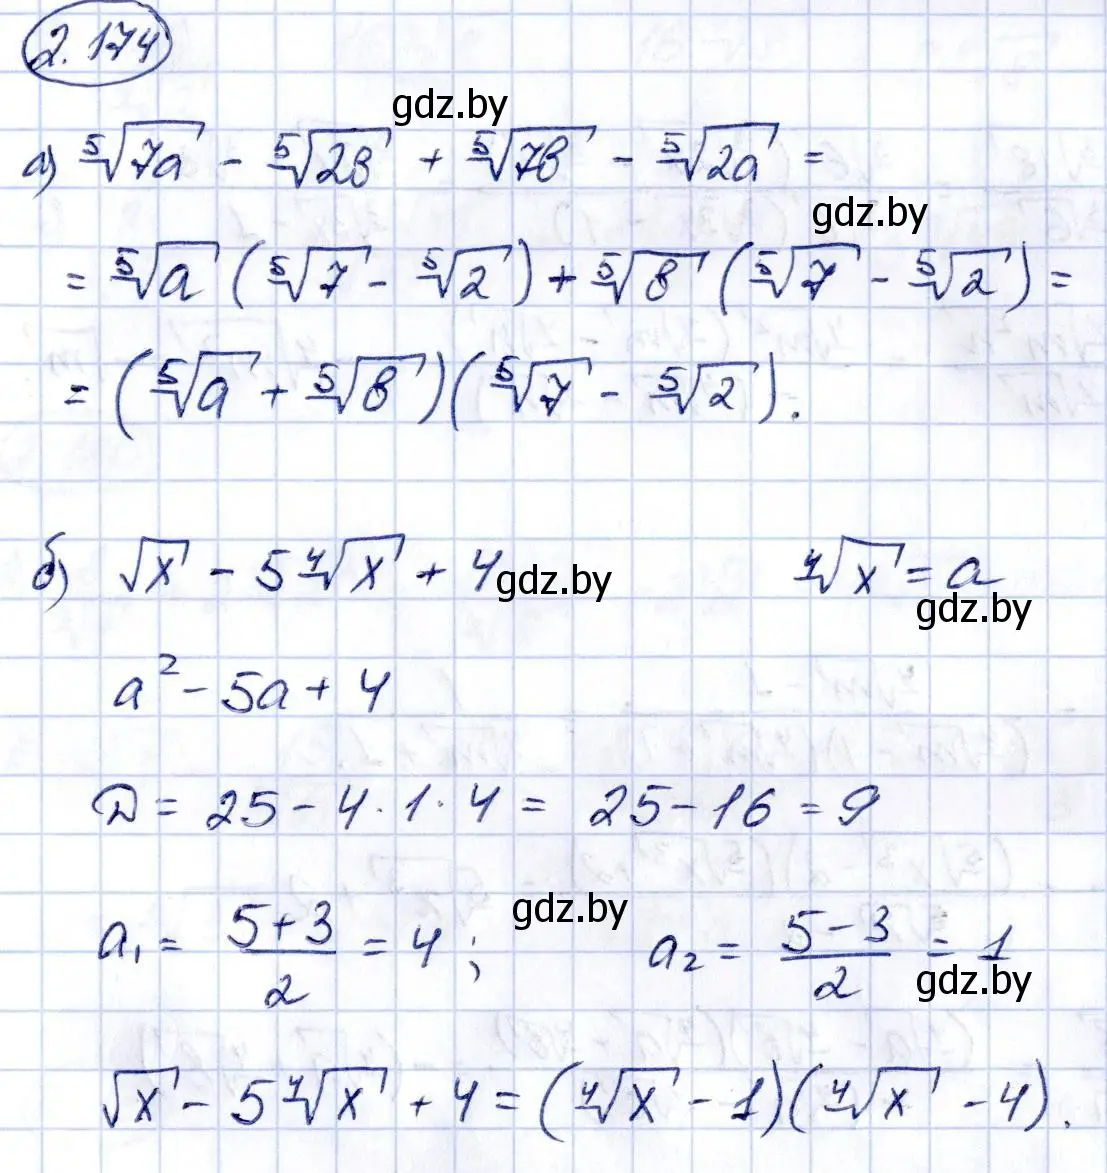 2.174
gdz.by
а) ⁵√7a - ⁵√2b + ⁵√7b - ⁵√2a =
gdz.by
= ⁵√a (⁵√7 - ⁵√2) + ⁵√b (⁵√7 - ⁵√2) =
= (⁵√a + ⁵√b)(⁵√7 - ⁵√2).
б) √x - 5 ⁴√x + 4 ⁴√x = a
gdz.by
gdz.by
a² - 5a + 4
D = 25 - 4 · 1 · 4 = 25 - 16 = 9
gdz.by
a₁ = (5+3)/2 = 4 ; a₂ = (5-3)/2 = 1
gdz.by
√x - 5 ⁴√x + 4 = (⁴√x - 1)(⁴√x - 4).